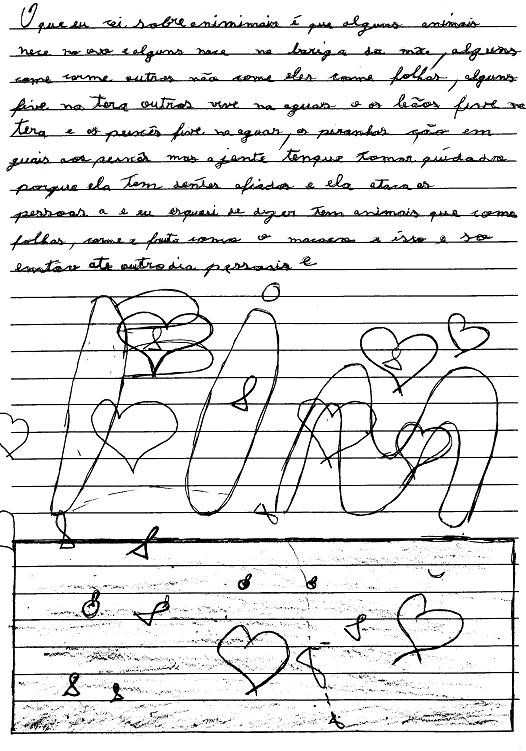 O que eu sei sobre animimais é que alguns animais
nece no ovo e alguns nace na bariga da mãe, alguns
come carne outros não come eles come folhas, alguns
five na tera outros vive na aguas o os leãos five na
tera e os peixês five na aguas, os piranhas ção em
guais aos peixês mas ajente tenque tomar quidado
porque ela tem dentes afiados e ela ataca as
pessoas a e eu esqueci de dizer tem animais que come
folhas, carne e fruta como o macaco e isso e so
emtão até outro dia pessoais e
Fim